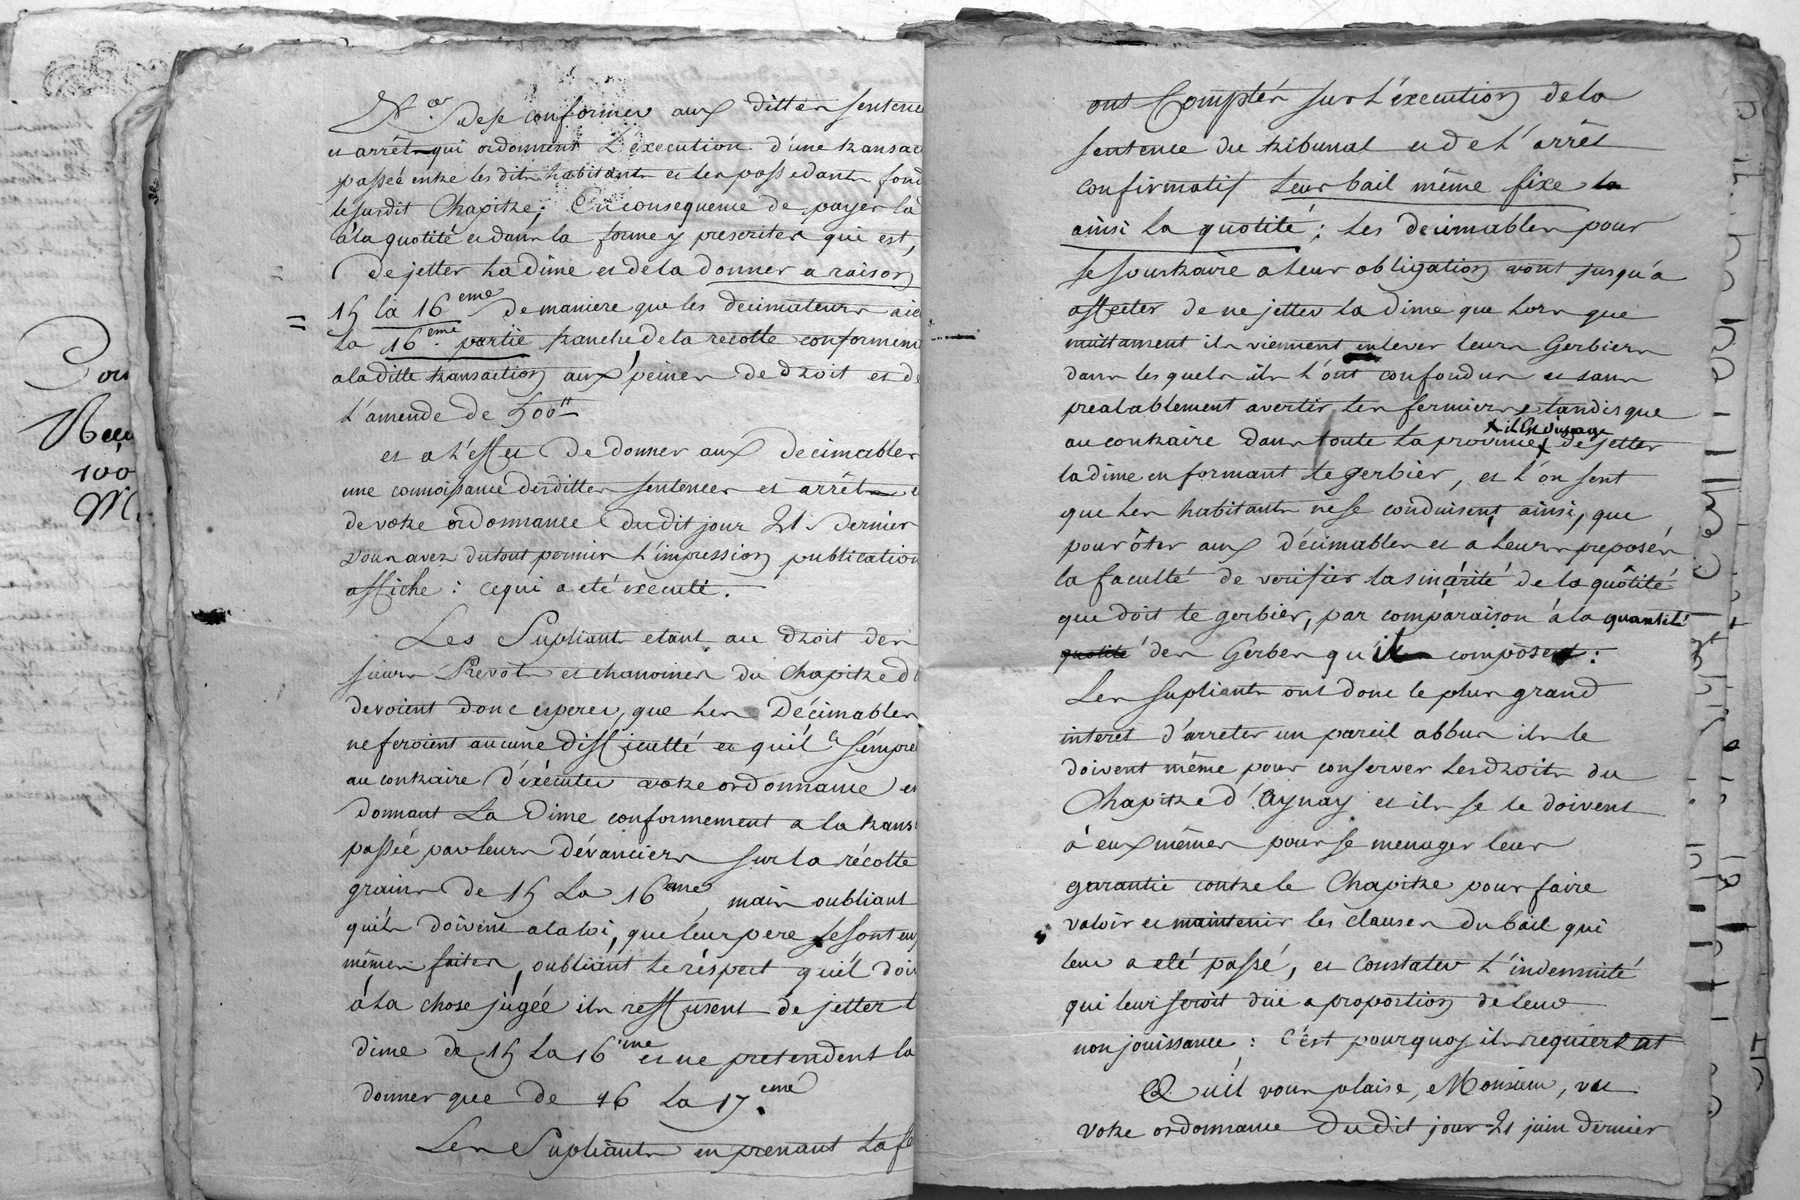 De se conformer aux dittes sentence
et arrêt qui ordonnent L'execution d'une transac
passée entre les dits habitants et les possedants fond
le susdit Chapitre; En consequence de payer la
à la quotité et dans la forme y prescrites qui est,
De jetter La dîme et de la donner a raison
15 la 16eme De maniere que les decimateurs aie
La 16eme partie franche de la récolte conformem
a la ditte transaction aux peines De droit et de
L'amende de 500tt
et a L'effet De donner aux Decimables
une connoissance des dittes sentences et arrêts e
de votre ordonnance Du dit jour 21 Dernier
vous avez du tout permis L'impression publication
affiche : ce qui a eté executé.
Les Supliants etant au droit des
sieurs Prevot et chanoines du Chapitre d
devoient donc esperer, que Les Décimables
ne feroient aucune difficulté et qu'ils s'empre
au contraire d'exécuter votre ordonnance en
donnant La Dime conformement a la trans
passée par leurs dévanciers sur la récolte
grains De 15 La 16eme, mais oubliant
qu'ils doivent a la loi, que leur pere se sont eu
mêmes faites, oubliant le réspect qu'il doi
à La chose jugée ils reffusent de jetter l
dime de 15 La 16eme et ne pretendent la
donner que De 16 La 17eme.
Les Supliants en prenant La fe
Pou
Rece
100
M.
ont Comptés sur L'éxecution de la
sentence du tribunal et de L'arrêt
confirmatif Leur bail même fixe
ainsi La quotité; Les decimables pour
se soustraire a leur obligation vont jusqu'a
affecter de ne jetter la Dime que Lors que
nuittament ils viennent enlever leurs Gerbiers
dans les quels ils L'ont confondus et sans
prealablement avertir Les fermiers tandis que
au contraire Dans toute La province il Est d'usage de jetter
la dime en formant le gerbier, et L'on sent
que Les habitants ne se conduisent ainsi, que
pour ôter aux Décimables et a Leurs preposés
la faculté de verifier la sincérité de la quôtité
que doit le gerbier, par comparaison à la quantité
quotité des Gerbes qu'il compose :
Les supliants ont donc le plus grand
interet d'arreter un pareil abbus ils le
doivent même pour conserver Les droits du
Chapitre d'Aynay et ils se le doivent
à eux mêmes pour se menager leur
garantie contre le Chapitre pour faire
valoir et maintenir les clauses Du bail qui
leur a eté passé, et Constater L'indemnité
qui leur seroit düe a proportion de leur
non jouissance : C'est pourquoy ils requierent
Qu'il vous plaise, Monsieur, vu
votre ordonnance Du dit jour 21 juin dernier